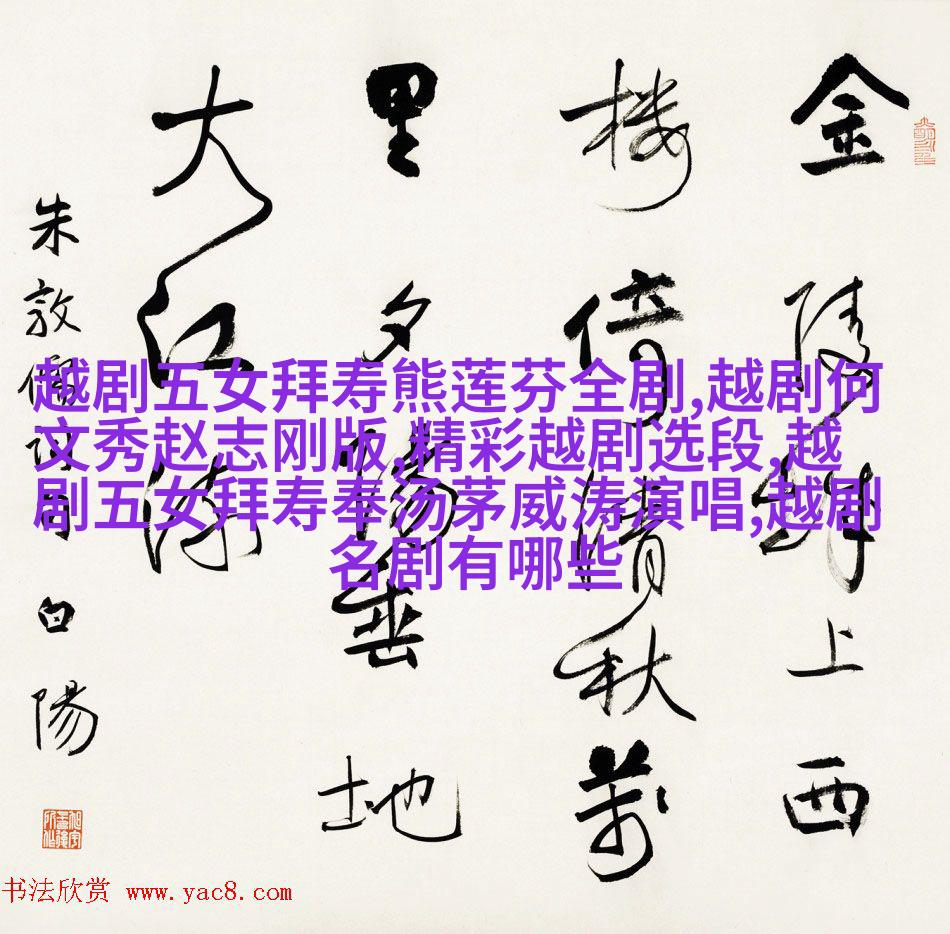 金陵城上西
楼倚清秋萬
里夕陽垂地
大江流
朱敦儒词句 白陽
越剧五女拜寿熊莲芬全剧,越剧何
文秀赵志刚版,精彩越剧选段,越
剧五女拜寿奉汤茅威涛演唱,越剧
名剧有哪些
书法欣赏 www.yac8.com